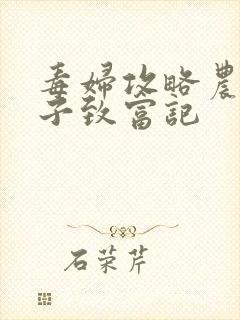 毒婦攻略農
子致富記
石荣芹